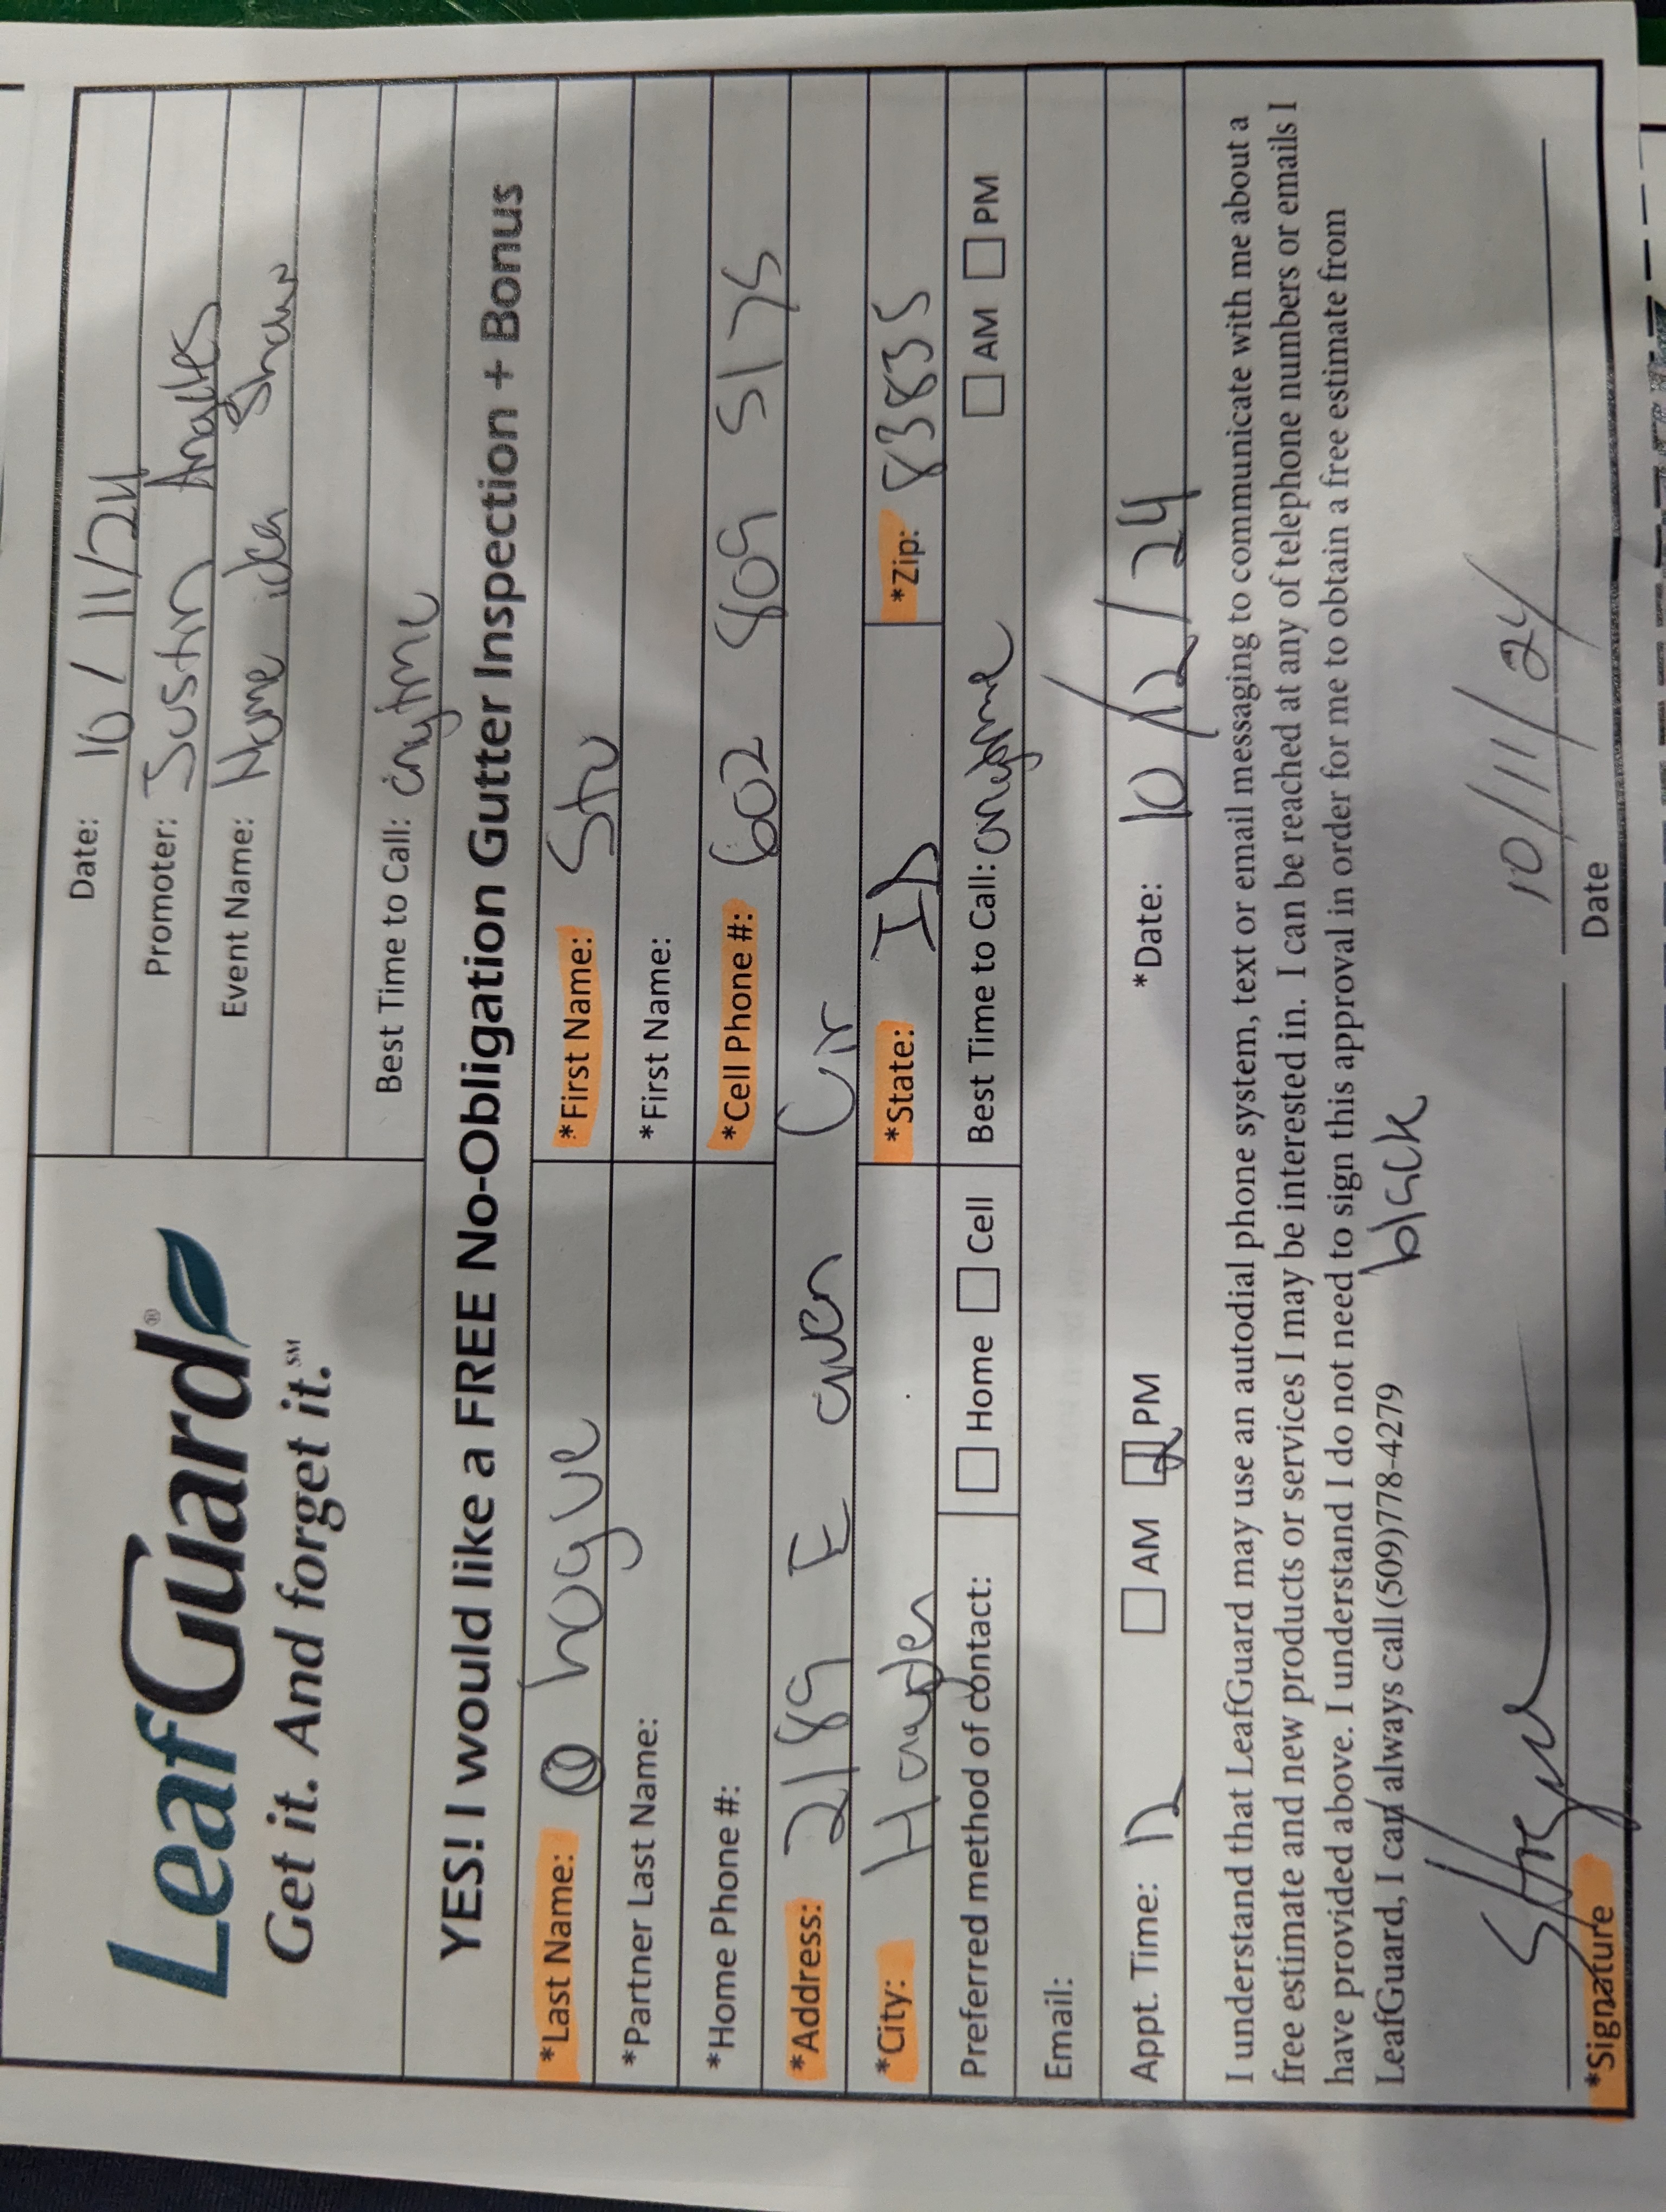 LeafGuard®
Get it. And forget it.℠
Date: 10/11/24
Promoter: Justin Angles
Event Name: Home idea Show
Best Time to Call: anytime
YES! I would like a FREE No-Obligation Gutter Inspection + Bonus
*Last Name: hogue *First Name: Stu
*Partner Last Name: *First Name:
*Home Phone #: *Cell Phone #: 602 809 5175
*Address: 2189 E Cir
*City: Hayden *State: ID *Zip: 83835
Preferred method of contact: Home Cell Best Time to Call: anytime AM PM
Email:
Appt. Time: 12 AM PM *Date: 10/12/24
I understand that LeafGuard may use an autodial phone system, text or email messaging to communicate with me about a
free estimate and new products or services I may be interested in. I can be reached at any of telephone numbers or emails I
have provided above. I understand I do not need to sign this approval in order for me to obtain a free estimate from
LeafGuard, I can always call (509)778-4279
black
10/11/24
*Signature Date